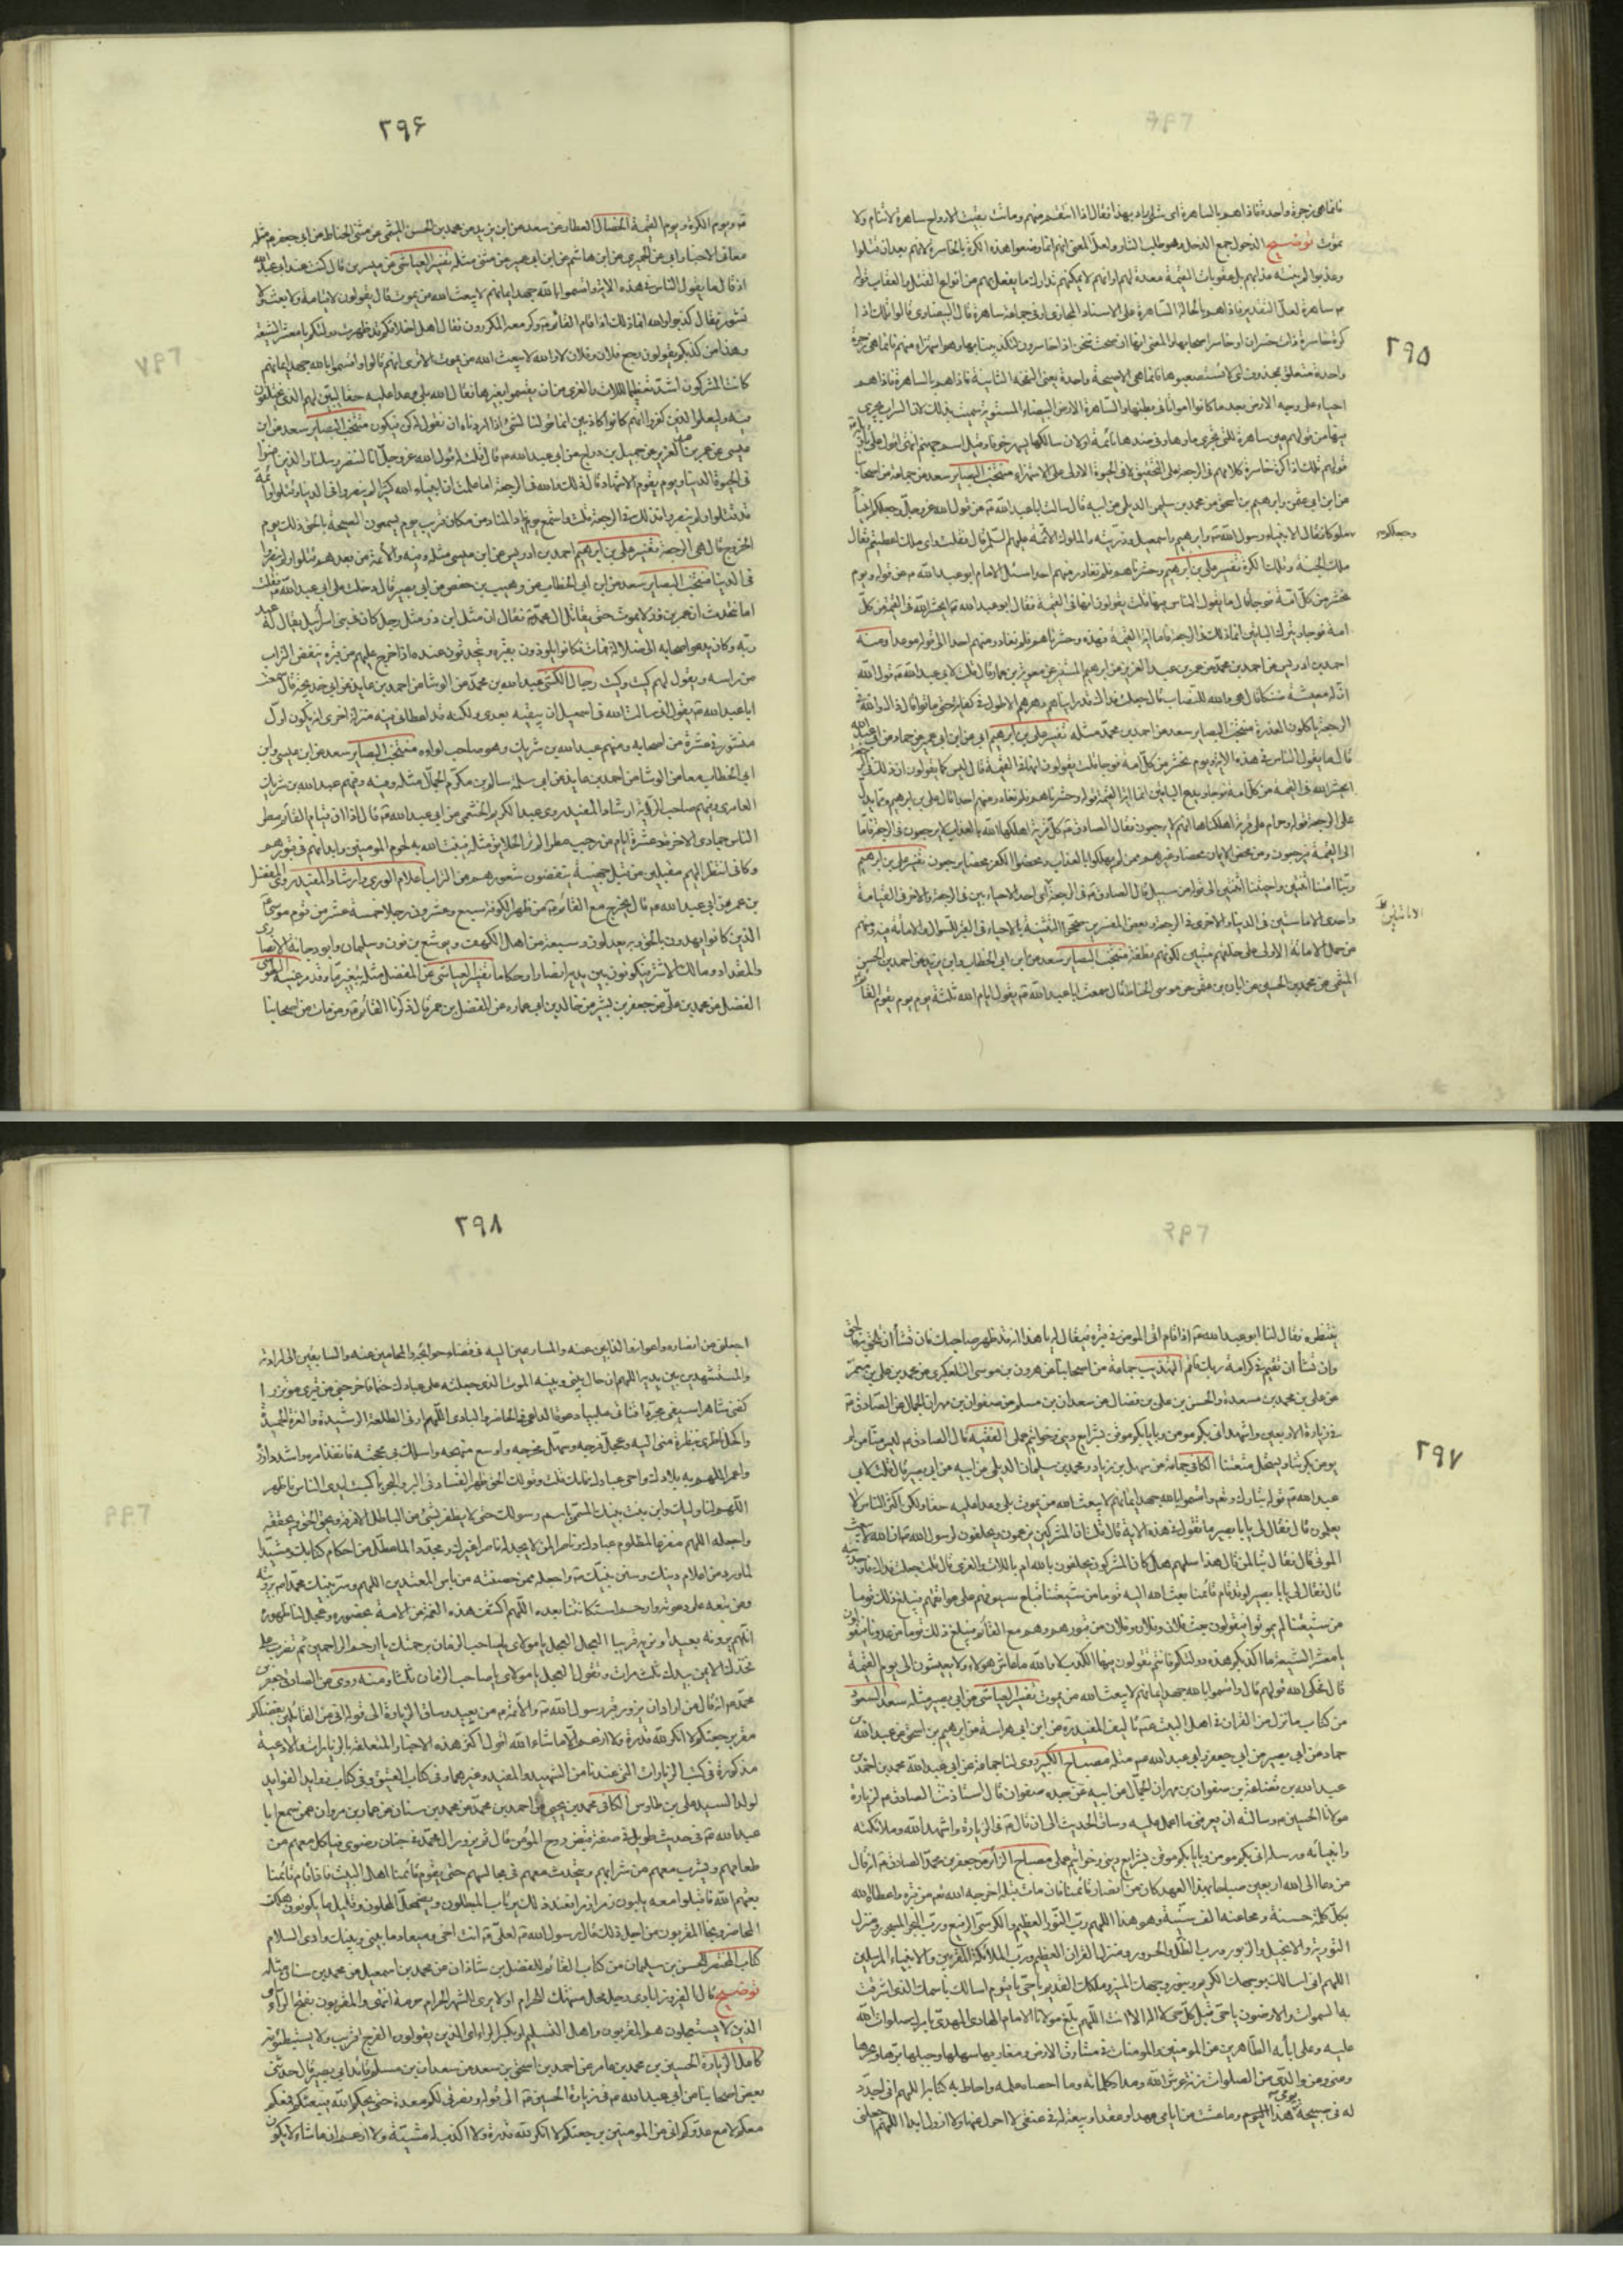 ٢٩٥
فانما هي زجرة واحدة فاذا هم بالساهرة اى شئ اراد بهذا فقال اذا انتقم منهم وماتت بقيت الارواح ساهرة لا تنام ولا
تموت توضيح الذحول جمع الذحل وهو طلب الثار ولعل المعنى انهم انما وصفوا هذه الكرة بالخاسرة لانهم بعد ان قتلوا
وعذبوا لم ينته عذابهم بل عقوبات القيمة معدة لهم او انهم لا يمكنهم تدارك ما يفعل بهم من انواع القتل والعقاب قوله
ساهرة لعل التقدير فاذا هم بالحالة الساهرة على الاسناد المجازى او فى جماعة ساهرة قال البيضاوى قالوا تلك اذا
كرة خاسرة ذات خسران او خاسر اصحابها والمعنى انها ان صحت فنحن اذا خاسرون لتكذيبنا بها وهو استهزاء منهم فانما هى زجرة
واحدة متعلق بمحذوف اى لا تستصعبوها فانما هى الا صيحة واحدة يعنى النفخة الثانية فاذا هم بالساهرة فاذا هم
احياء على وجه الارض بعد ما كانوا امواتا فى بطنها والساهرة الارض البيضاء المستوية سميت بذلك لان السراب يجرى
فيها من قولهم عين ساهرة للتى تجرى ماؤها وفى ضدها نائمة او لان سالكها يسهر خوفا وقيل اسم جهنم انتهى اقول على تاويله
قولهم تلك اذا كرة خاسرة كلامهم فى الرجعة على التحقيق لا فى الحيوة الاولى على الاستهزاء منتخب البصاير سعد عن جماعة من اصحابنا
عن ابن ابى عثمن وابرهيم بن اسحق عن محمد بن سليمن الديلمى عن ابيه قال سالت ابا عبد الله ع عن قول الله عز وجل وجعلكم انبياء
وجعلكم
ملوكا فقال الانبياء رسول الله ص وابرهيم واسمعيل وذريته والملوك الائمة عليهم السلم قال فقلت واى ملك اعطيتم فقال
ملك الجنة وملك الكرة تفسير على بن ابرهيم وحشرناهم فلم نغادر منهم احدا سئل الامام ابو عبد الله ع عن قوله ويوم
نحشر من كل امة فوجا قال ما يقول الناس فيها قلت يقولون انها فى القيمة فقال ابو عبد الله ع ايحشر الله فى القيمة من كل
امة فوجا ويترك الباقين انما ذلك فى الرجعة فاما اية القيمة فهذه وحشرناهم فلم نغادر منهم احدا الى قوله موعدا ومنه
احمد بن ادريس عن احمد بن محمد عن عمر بن عبد العزيز عن ابرهيم المستنير عن معوية بن عمار قال قلت لابى عبد الله ع قول الله
ان له معيشة ضنكا قال هى والله للنصاب قال جعلت فداك قد رايناهم دهرهم الاطول فى كفاية حتى ماتوا قال ذاك والله فى
الرجعة ياكلون العذرة منتخب البصاير سعد عن احمد بن محمد مثله تفسير على بن ابرهيم ابى عن ابن ابى عمير عن حماد عن ابى عبد الله
قال ما يقول الناس فى هذه الاية ويوم نحشر من كل امة فوجا قلت يقولون انها فى القيمة قال ليس كما يقولون ان ذلك فى الرجعة
ايحشر الله فى القيمة من كل امة فوجا ويدع الباقين انما اية القيمة قوله وحشرناهم فلم نغادر منهم احدا قال على بن ابرهيم ومما يدل
على الرجعة قوله وحرام على قرية اهلكناها انهم لا يرجعون فقال الصادق ع كل قرية اهلكها الله بالعذاب لا يرجعون فى الرجعة فاما
الى القيمة فيرجعون ومن محض الايمان محضا وغيرهم ممن لم يهلكوا بالعذاب ومحضوا الكفر محضا يرجعون تفسير على بن ابرهيم
ربنا امتنا اثنتين واحييتنا اثنتين الى قوله من سبيل قال الصادق ع ذلك فى الرجعة اى احد الاحيائين فى الرجعة والاخر فى القيامة
واحدى الاماتتين فى الدنيا والاخرى فى الرجعة وبعض المفسرين صححوا التثنية بالاحياء فى القبر للسؤال والاماتة فيه ومنهم
الاماتتين
من حمل الاماتة الاولى على خلقهم ميتين لكونهم نطفة منتخب البصاير سعد عن ابن ابى الخطاب وابن يزيد عن احمد بن الحسن
الميثمى عن محمد بن الحسين عن ابان بن عثمن عن موسى الحناط قال سمعت ابا عبد الله ع يقول ايام الله ثلثة يوم يقوم القائم
٢٩۶
ع ويوم الكرة ويوم القيمة الخصال العطار عن سعد عن ابن يزيد عن محمد بن الحسن الميثمى عن مثنى الحناط عن ابى جعفر ع مثله
معانى الاخبار ابى عن الحميرى عن ابن هاشم عن ابن ابى عمير عن مثنى مثله تفسير العياشى عن سيرين قال كنت عند ابى عبد الله
اذ قال ما يقول الناس فى هذه الاية واقسموا بالله جهد ايمانهم لا يبعث الله من يموت قال يقولون لا قيامة ولا بعث ولا
نشور فقال كذبوا والله انما ذلك اذا قام القائم ع وكر معه المكرون فقال اهل خلافكم قد ظهرت دولتكم يا معشر الشيعة
وهذا من كذبكم يقولون رجع فلان وفلان لا والله لا يبعث الله من يموت الا ترى انهم قالوا واقسموا بالله جهد ايمانهم
كانت المشركون اشد تعظيما لللات والعزى من ان يقسموا بغيرها فقال الله بلى وعدا عليه حقا ليبين لهم الذى يختلفون
فيه وليعلم الذين كفروا انهم كانوا كاذبين انما قولنا لشئ اذا اردناه ان نقول له كن فيكون منتخب البصاير سعد عن ابن
عيسى عن عمر بن عبد العزيز عن جميل بن دراج عن ابى عبد الله ع قال قلت له قول الله عز وجل انا لننصر رسلنا والذين امنوا
فى الحيوة الدنيا ويوم يقوم الاشهاد قال ذلك والله فى الرجعة اما علمت ان انبياء الله كثيرا لم ينصروا فى الدنيا وقتلوا وائمة
قد قتلوا ولم ينصروا فذلك فى الرجعة قلت واستمع يوم يناد المناد من مكان قريب يوم يسمعون الصيحة بالحق ذلك يوم
الخروج قال هى الرجعة تفسير على بن ابرهيم احمد بن ادريس عن ابن عيسى مثله وفيه والائمة من بعدهم قتلوا ولم ينصروا
فى الدنيا منتخب البصاير سعد عن ابن ابى الخطاب عن وهيب بن حفص عن ابى بصير قال دخلت على ابى عبد الله ع فقلت
انا نتحدث ان عمر بن ذر لا يموت حتى يقاتل قائم ال محمد ع فقال ان مثل ابن ذر مثل رجل كان فى بنى اسرائيل يقال له عبد
ربه وكان يدعو اصحابه الى ضلالة فمات فكانوا يلوذون بقبره ويتحدثون عنده اذا خرج عليهم من قبره ينفض التراب
من راسه ويقول لهم كيت وكيت رجال الكشى عبد الله بن محمد عن الوشا عن احمد بن عايذ عن ابى خديجة قال سمعت
ابا عبد الله ع يقول انى سالت الله فى اسمعيل ان يبقيه بعدى ولكنه قد اعطانى فيه منزلة اخرى انه يكون اول
منشور فى عشرة من اصحابه ومنهم عبد الله بن شريك وهو صاحب لوائه منتخب البصاير سعد عن ابن عيسى وابن
ابى الخطاب معا عن الوشا عن احمد بن عايذ عن ابى سلمة سالم بن مكرم الجمال مثله وفيه وفيهم عبد الله بن شريك
العامرى وفيهم صاحب الراية ارشاد المفيد روى عبد الكريم الخثعمى عن ابى عبد الله ع قال اذا ان قيام القائم مطر
الناس جمادى الاخرة وعشرة ايام من رجب مطرا لم ير الخلايق مثله فينبت الله به لحوم المومنين وابدانهم فى قبورهم
وكانى انظر اليهم مقبلين من قبل جهينة ينفضون شعورهم من التراب اعلام الورى وارشاد المفيد روى المفضل
بن عمر عن ابى عبد الله ع قال يخرج مع القائم ع من ظهر الكوفة سبع وعشرون رجلا خمسة عشر من قوم موسى ع
الذين كانوا يهدون بالحق وبه يعدلون وسبعة من اهل الكهف ويوشع بن نون وسليمان وابو دجانة الانصارى
والمقداد ومالك الاشتر فيكونون بين يديه انصارا وحكاما تفسير العياشى عن المفضل مثله بتغيير ما وقد مر غيبة الطوسى
الفضل عن محمد بن على عن جعفر بن بشير عن خالد بن ابى عماره عن المفضل بن عمر قال ذكرنا القائم ع ومن مات من اصحابنا
٢٩٧
ينتظره فقال لنا ابو عبد الله ع اذا قام اتى المومن فى قبره فيقال له يا هذا انه قد ظهر صاحبك فان تشأ ان تلحق به فالحق
وان تشأ ان تقيم فى كرامة ربك فاقم التهذيب جماعة من اصحابنا عن هرون بن موسى التلعكبرى عن محمد بن على بن معمر
عن على بن محمد بن مسعدة والحسن بن على بن فضال عن سعدان بن مسلم عن صفوان بن مهران الجمال عن الصادق ع
فى زيارة الاربعين واشهد انى بكم مومن وبايابكم موقن بشرايع دينى وخواتيم عملى الفقيه قال الصادق ع ليس منا من لم
يومن بكرتنا ويستحل متعتنا الكافى جماعة عن سهل بن زياد ومحمد بن سليمان الديلمى عن ابيه عن ابى بصير قال قلت لابى
عبد الله ع قوله تبارك وتعالى واقسموا بالله جهد ايمانهم لا يبعث الله من يموت بلى وعدا عليه حقا ولكن اكثر الناس لا
يعلمون قال فقال لى يا با بصير ما تقول فى هذه الاية قال قلت ان المشركين يزعمون ويحلفون لرسول الله ص ان الله لا يبعث
الموتى قال فقال تبا لمن قال هذا سلهم هل كان المشركون يحلفون بالله ام باللات والعزى قال قلت جعلت فداك فاوجدنيه
قال فقال لى يا با بصير لو قد قام قائمنا بعث الله اليه قوما من شيعتنا قباع سيوفهم على عواتقهم فيبلغ ذلك قوما
من شيعتنا لم يموتوا فيقولون بعث فلان وفلان وفلان من قبورهم وهم مع القائم فيبلغ ذلك قوما من عدونا فيقولون
يا معشر الشيعة ما اكذبكم هذه دولتكم فانتم تقولون فيها الكذب لا والله ما عاش هولاء ولا يعيشون الى يوم القيمة
قال فحكى الله قولهم قال واقسموا بالله جهد ايمانهم لا يبعث الله من يموت تفسير العياشى عن ابى بصير مثله سعد السعود
من كتاب ما نزل من القران فى اهل البيت ع تاليف المفيد ره عن ابن ابى هراسة عن ابرهيم بن اسحق عن عبد الله بن
حماد عن ابى بصير عن ابى جعفر وابى عبد الله ع مثله مصباح الكبير روى لنا جماعة عن ابى عبد الله محمد بن احمد بن
عبد الله بن قضاعة بن صفوان بن مهران الجمال عن ابيه عن جده صفوان قال استاذنت الصادق ع لزيارة
مولانا الحسين ع وسالته ان يعرفنى ما اعمل عليه وساق الحديث الى ان قال ع فى الزيارة واشهد الله وملائكته
وانبيائه ورسله انى بكم مومن وبايابكم موقن بشرايع دينى وخواتيم عملى مصباح الزائر عن جعفر بن محمد الصادق ع انه قال
من دعا الى الله اربعين صباحا بهذا العهد كان من انصار قائمنا فان مات قبله اخرجه الله تع من قبره واعطاه الله
بكل كلمة حسنة ومحا عنه الف سيئة وهو هذا اللهم رب النور العظيم والكرسى الرفيع ورب البحر المسجور ومنزل
التورية والانجيل والزبور ورب الظل والحرور ومنزل القران العظيم ورب الملائكة المقربين والانبياء والمرسلين
اللهم انى اسالك بوجهك الكريم وبنور وجهك المنير وملكك القديم يا حى يا قيوم اسالك باسمك الذى اشرقت
به السموات والارضون يا حى قبل كل حى لا اله الا انت اللهم بلغ مولانا الامام الهادى المهدى القائم بامر الله صلوات الله
عليه وعلى ابائه الطاهرين عن المومنين والمومنات فى مشارق الارض ومغاربها سهلها وجبلها برها وبحرها
وعنى وعن والدى من الصلوات زنة عرش الله ومداد كلماته وما احصاه علمه واحاط به كتابه اللهم انى اجدد
له فى صبيحة يومى هذا وما عشت من ايامى عهدا وعقدا وبيعة له فى عنقى لا احول عنها ولا ازول ابدا اللهم اجعلنى
٢٩٨
اجعلنى من انصاره واعوانه والذابين عنه والمسارعين اليه فى قضاء حوائجه والمحامين عنه والسابقين الى ارادته
والمستشهدين بين يديه اللهم ان حال بينى وبينه الموت الذى جعلته على عبادك حتما فاخرجنى من قبرى مؤتزرا
كفنى شاهرا سيفى مجردا قناتى ملبيا دعوة الداعى فى الحاضر والبادى اللهم ارنى الطلعة الرشيدة والغرة الحميدة
واكحل ناظرى بنظرة منى اليه وعجل فرجه وسهل مخرجه واوسع منهجه واسلك بى محجته فانفذ امره واشدد ازره
واعمر اللهم به بلادك واحى عبادك فانك قلت وقولك الحق ظهر الفساد فى البر والبحر بما كسبت ايدى الناس فاظهر
اللهم لنا وليك وابن بنت نبيك المسمى باسم رسولك حتى لا يظفر بشئ من الباطل الا مزقه ويحق الحق ويحققه
واجعله اللهم مفزعا لمظلوم عبادك وناصرا لمن لا يجد له ناصرا غيرك ومجددا لما عطل من احكام كتابك ومشيدا
لما ورد من اعلام دينك وسنن نبيك ص واجعله ممن حصنته من باس المعتدين اللهم وسر نبيك محمدا ص برويته
ومن تبعه على دعوته وارحم استكانتنا بعده اللهم اكشف هذه الغمة عن الامة بحضوره وعجل لنا ظهوره
انهم يرونه بعيدا ونريه قريبا العجل العجل يا مولاى يا صاحب الزمان برحمتك يا ارحم الراحمين ثم تضرب على
فخذك الايمن بيدك ثلث مرات وتقول العجل يا مولاى يا صاحب الزمان ثلثا ومنه روى عن الصادق جعفر بن
محمد ع انه قال من اراد ان يزور قبر رسول الله ص والائمة ع من بعيد وساق الزيارة الى قوله انى من القائلين بفضلكم
مقر برجعتكم لا انكر لله قدرة ولا ازعم الا ما شاء الله اقول اكثر هذه الاخبار المتعلقة بالزيارات والادعية
مذكورة فى كتب الزيارات التى عندنا من الشهيد والمفيد وغيرهما وفى كتاب العتيق وفى كتاب زوايد الفوايد
لولد السيد على بن طاوس الكافى محمد بن يحيى عن احمد بن محمد عن محمد بن سنان عن عمار بن مروان عمن سمع ابا
عبد الله ع فى حديث طويل فى صفة قبض روح المؤمن قال ثم يزور ال محمد فى جنان رضوى فياكل معهم من
طعامهم ويشرب معهم من شرابهم ويتحدث معهم فى مجالسهم حتى يقوم قائمنا اهل البيت فاذا قام قائمنا
بعثهم الله فاقبلوا معه يلبون زمرا زمرا فعند ذلك يرتاب المبطلون ويضمحل المحلون وقليل ما يكونون هلكت
المحاضير ونجا المقربون من اجل ذلك قال رسول الله ص لعلى ع انت اخى وميعاد ما بينى وبينك وادى السلام
كتاب المختصر للحسن بن سليمان من كتاب القائم للفضل بن شاذان عن محمد بن اسمعيل عن محمد بن سنان مثله
توضيح قال الفيروزابادى رجل محل منتهك للحرام او لا يرى للشهر الحرام حرمة انتهى والمقربون بفتح الراء اى
الذين لا يستعجلون هم المقربون واهل التسليم او بكسر الراء اى الذين يقولون الفرج قريب ولا يستبطئونه
كامل الزيارة الحسين بن محمد بن عامر عن احمد بن اسحق بن سعد عن سعدان بن مسلم قائد ابى بصير قال حدثنى
بعض اصحابنا عن ابى عبد الله ع فى زيارة الحسين ع الى قوله ونصرتى لكم معدة حتى يحكم الله ويبعثكم فمعكم
معكم لا مع عدوكم انى من المومنين برجعتكم لا انكر لله قدرة ولا اكذب له مشية ولا ازعم ان ما شاء لا يكون